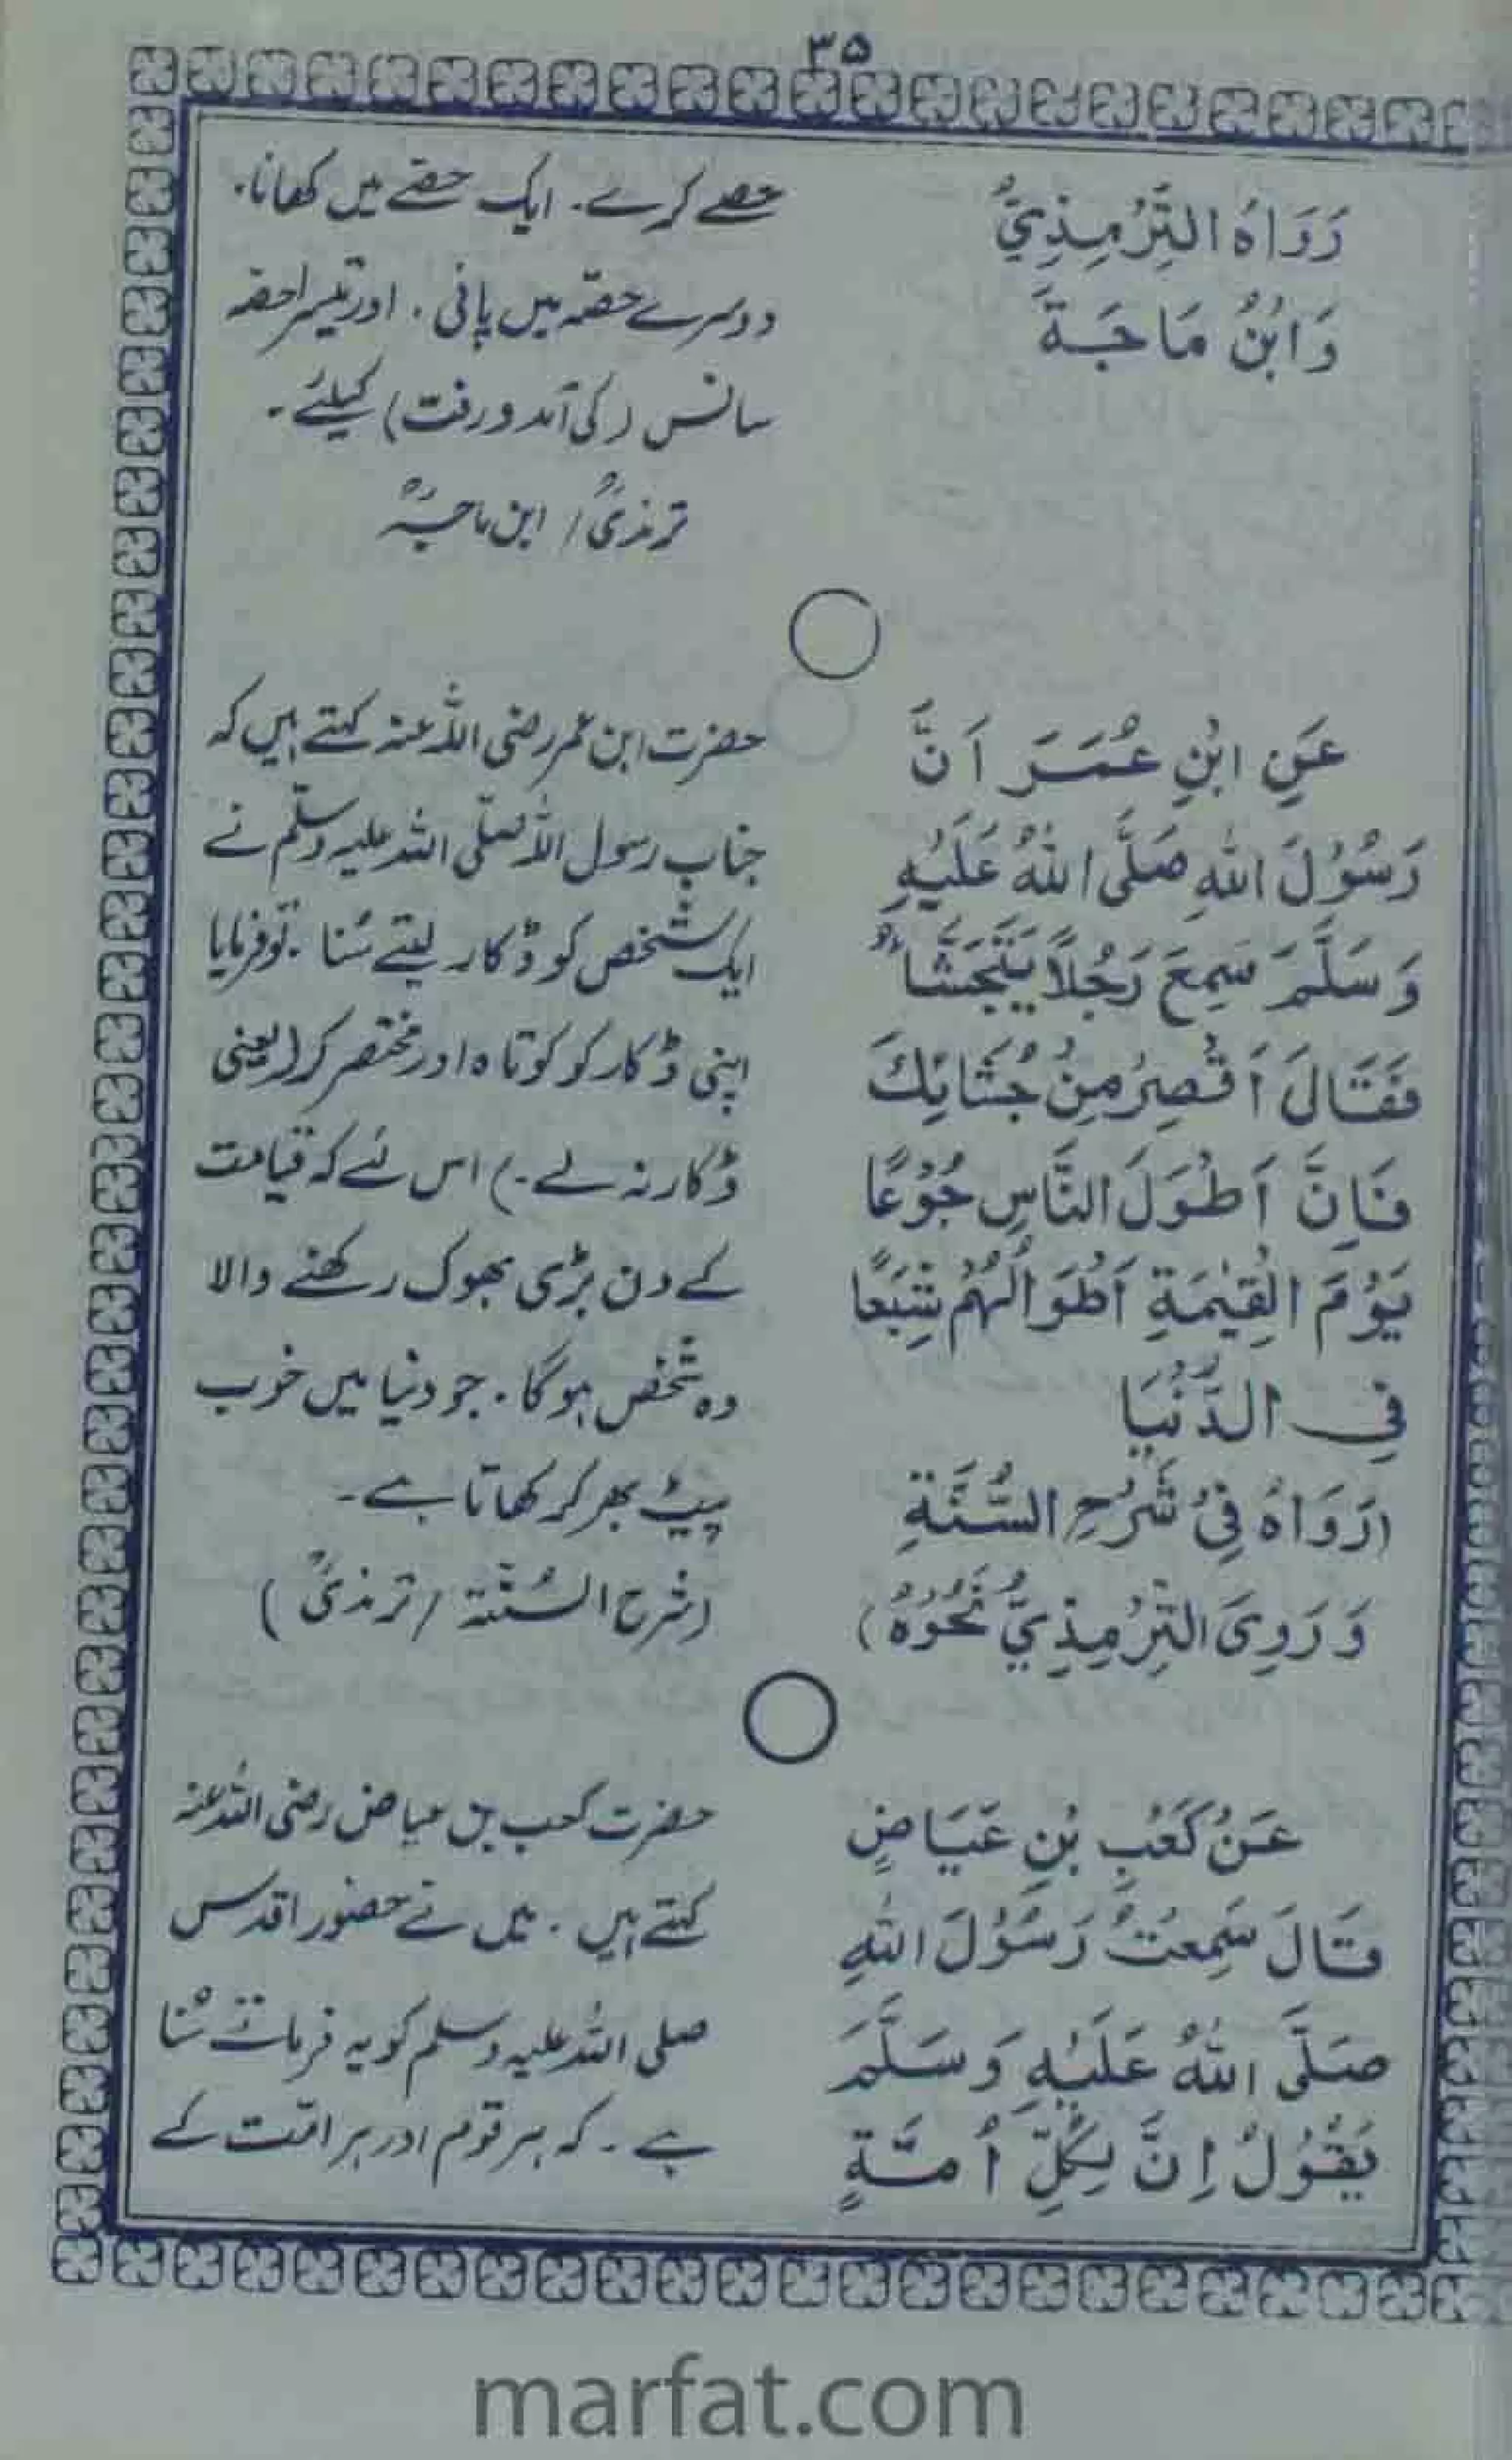 ۳۵
رَوَاهُ التِّرْمِذِيُّ
وَابْنُ مَاجَةَ
حصے کرے۔ ایک حصّے میں کھانا.
دوسرے حصّہ میں پانی . اور تیسرا حصّہ
سانس (کی آمد و رفت) کیلئے ۔
ترمذیؒ / ابن ماجہؒ
عَنِ ابْنِ عُمَرَ اَنَّ
رَسُوْلَ اللّٰهِ صَلَّى اللّٰهُ عَلَيْهِ
وَسَلَّمَ سَمِعَ رَجُلًا يَتَجَشَّاُ
فَقَالَ اَقْصِرْ مِنْ جُشَائِكَ
فَاِنَّ اَطْوَلَ النَّاسِ جُوْعًا
يَوْمَ الْقِيٰمَةِ اَطْوَالُهُمْ شِبَعًا
فِي الدُّنْيَا
(رَوَاهُ فِيْ شَرْحِ السُّنَّةِ
وَرَوِىَ التِّرْمِذِيُّ نَحْوَهُ)
حضرت ابن عمر رضی اللہ عنہ کہتے ہیں کہ
جناب رسول اللہ صلّی اللہ علیہ وسلّم نے
ایک شخص کو ڈکار لیتے سُنا . تو فرمایا
اپنی ڈکار کو کوتاہ اور مختصر کر (یعنی
ڈکار نہ لے ۔) اس لئے کہ قیامت
کے دن بڑی بھوک رکھنے والا
وہ شخص ہوگا . جو دنیا میں خوب
پیٹ بھر کر کھاتا ہے ۔
(شرح السُنّۃ / ترمذیؒ)
عَنْ كَعْبِ بْنِ عَيَاضٍ
قَالَ سَمِعْتُ رَسُوْلَ اللّٰهِ
صَلَّى اللّٰهُ عَلَيْهِ وَسَلَّمَ
يَقُوْلُ اِنَّ لِكُلِّ اُمَّةٍ
حضرت کعب بن عیاض رضی اللہ عنہ
کہتے ہیں . میں نے حضور اقدس
صلی اللہ علیہ وسلم کو یہ فرماتے سُنا
ہے ۔ کہ ہر قوم اور ہر امّت کے
marfat.com